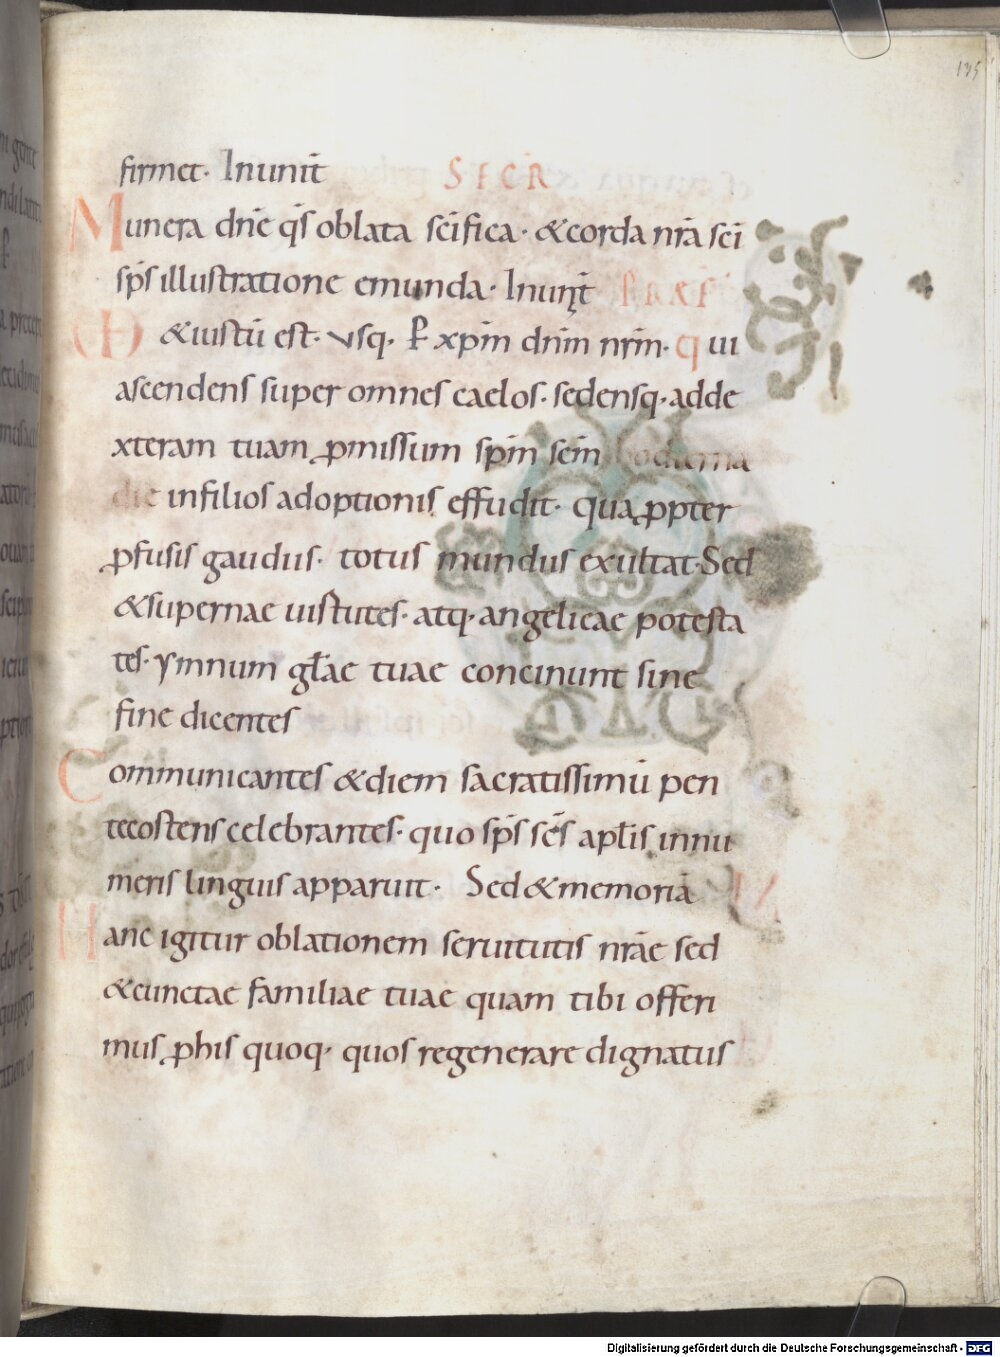 135
firmet· Inunit̄ SECR̄
Munera dn̄e q̄s oblata sc̄ifica· &corda nr̄a sc̄i
sp̄s illustratione emunda· Inunit̄ PRAEF̄
UD &iustū est· usq· P xp̄m dn̄m nr̄m· qui
ascendens super omnes caelos· sedensq· adde
xteram tuam ꝓmissum sp̄m sc̄m hodierna
die infilios adoptionis effudit· Quaꝓpter
ꝓfusis gaudiis· totus mundus exultat· Sed
&supernae uirtutes· atq· angelicae potesta
tes· ymnum gl̄ae tuae concinunt sine
fine dicentes
Communicantes &diem sacratissimū pen
tecosten celebrantes· quo sp̄s sc̄s apl̄is innu
meris linguis apparuit· Sed &memoriā
Hanc igitur oblationem seruitutis nrāe sed
&cunctae familiae tuae quam tibi offeri
mus ꝓhis quoq· quos regenerare dignatus
Digitalisierung gefördert durch die Deutsche Forschungsgemeinschaft - DFG